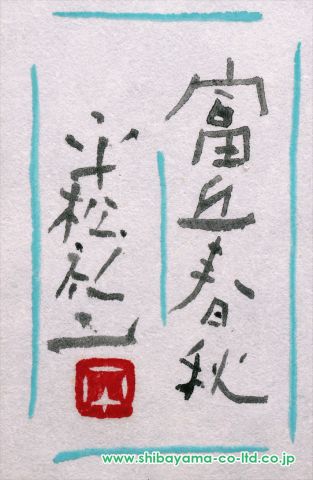 富丘春秋
平松礼二
www.shibayama-co-ltd.co.jp